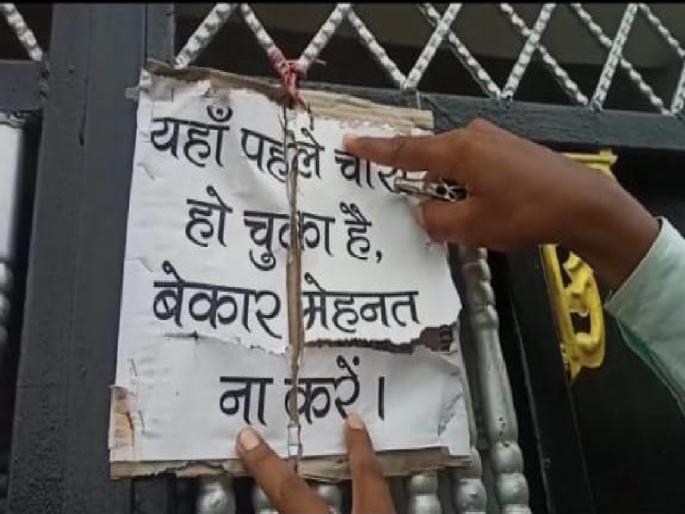 यहाँ पहले
हो चुका है,
बेकार मेहनत
ना करें।